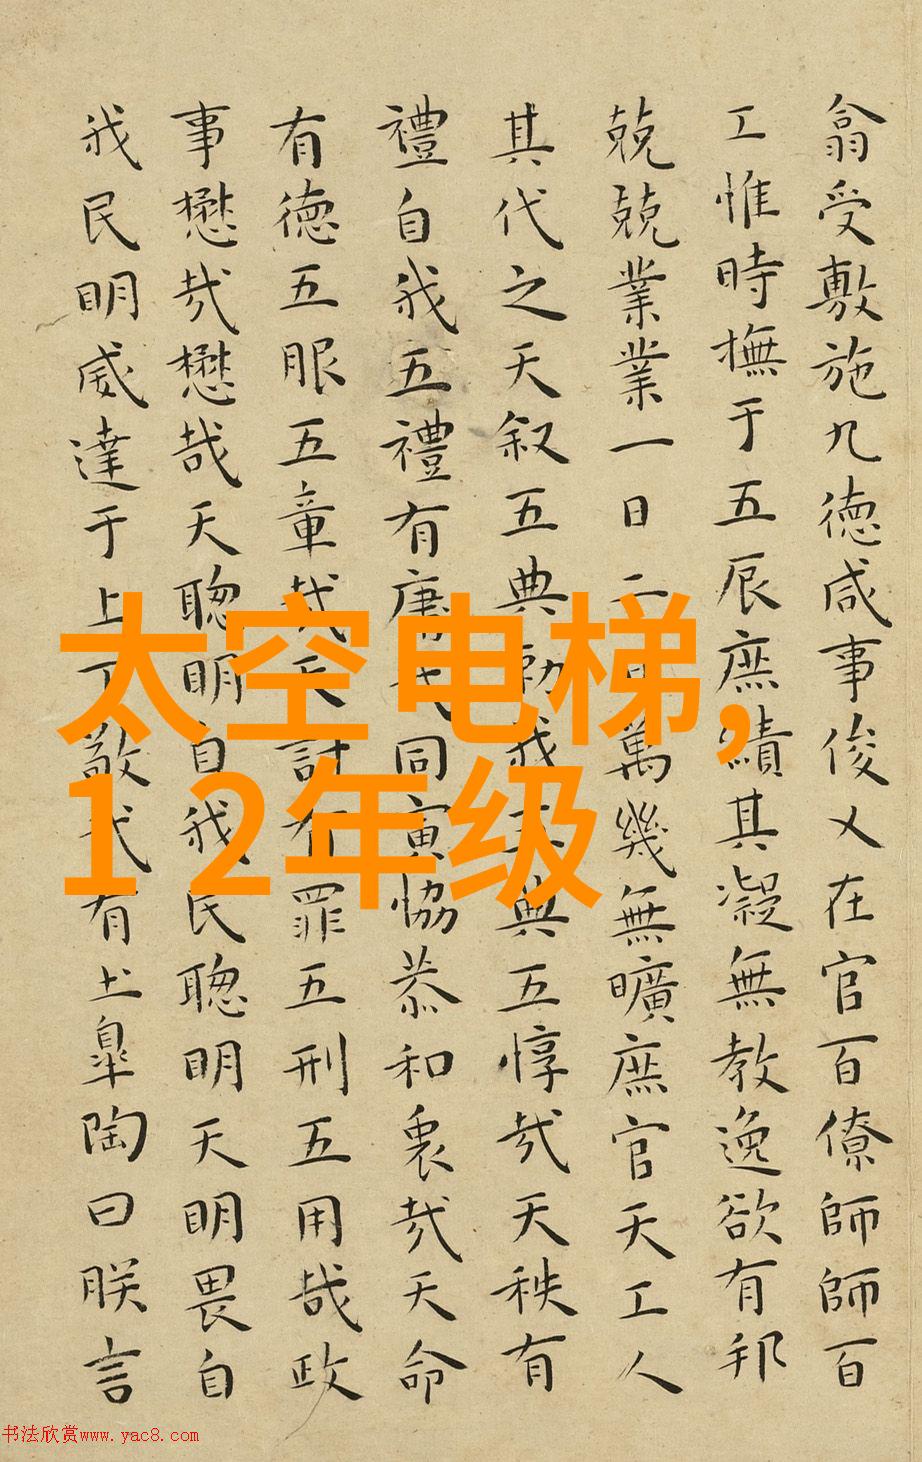 翕受敷施九德咸事俊乂在官百僚師師百
工惟時撫于五辰庶績其凝無教逸欲有邦
兢兢業業一日二日萬幾無曠庶官天工人
其代之天叙五典勑我五典五惇哉天秩有
禮自我五禮有庸哉同寅協恭和衷哉天命
有德五服五章哉天討有罪五刑五用哉政
事懋哉懋哉天聰明自我民聰明天明畏自
我民明威達于上下敬哉有土皋陶曰朕言
太空电梯,
12年级
书法欣赏www.yac8.com